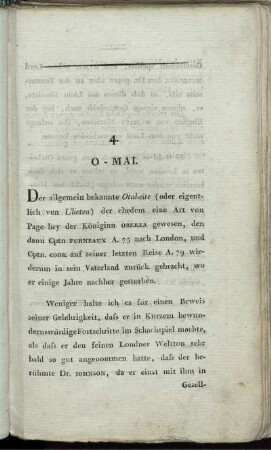 4.
O-MAI.
Der allgemein bekannte Otaheite (oder eigent-
lich von Ulietea) der ehedem eine Art von
Page bey der Königinn OBEREA gewesen, den
dann Cptn FURNEAUX A. 75 nach London, und
Cptn. COOK auf seiner letzten Reise A. 79 wie-
derum in sein Vaterland zurück gebracht, wo
er einige Jahre nachher gestorben.
Weniger halte ich es für einen Beweis
seiner Gelehrigkeit, daſs er in Kurzem bewun-
dernswürdige Fortschritte im Schachspiel machte,
als daſs er den feinen Londner Weltton sehr
bald so gut angenommen hatte, daſs der be-
rühmte Dr. JOHNSON, da er einst mit ihm in
Gesell-